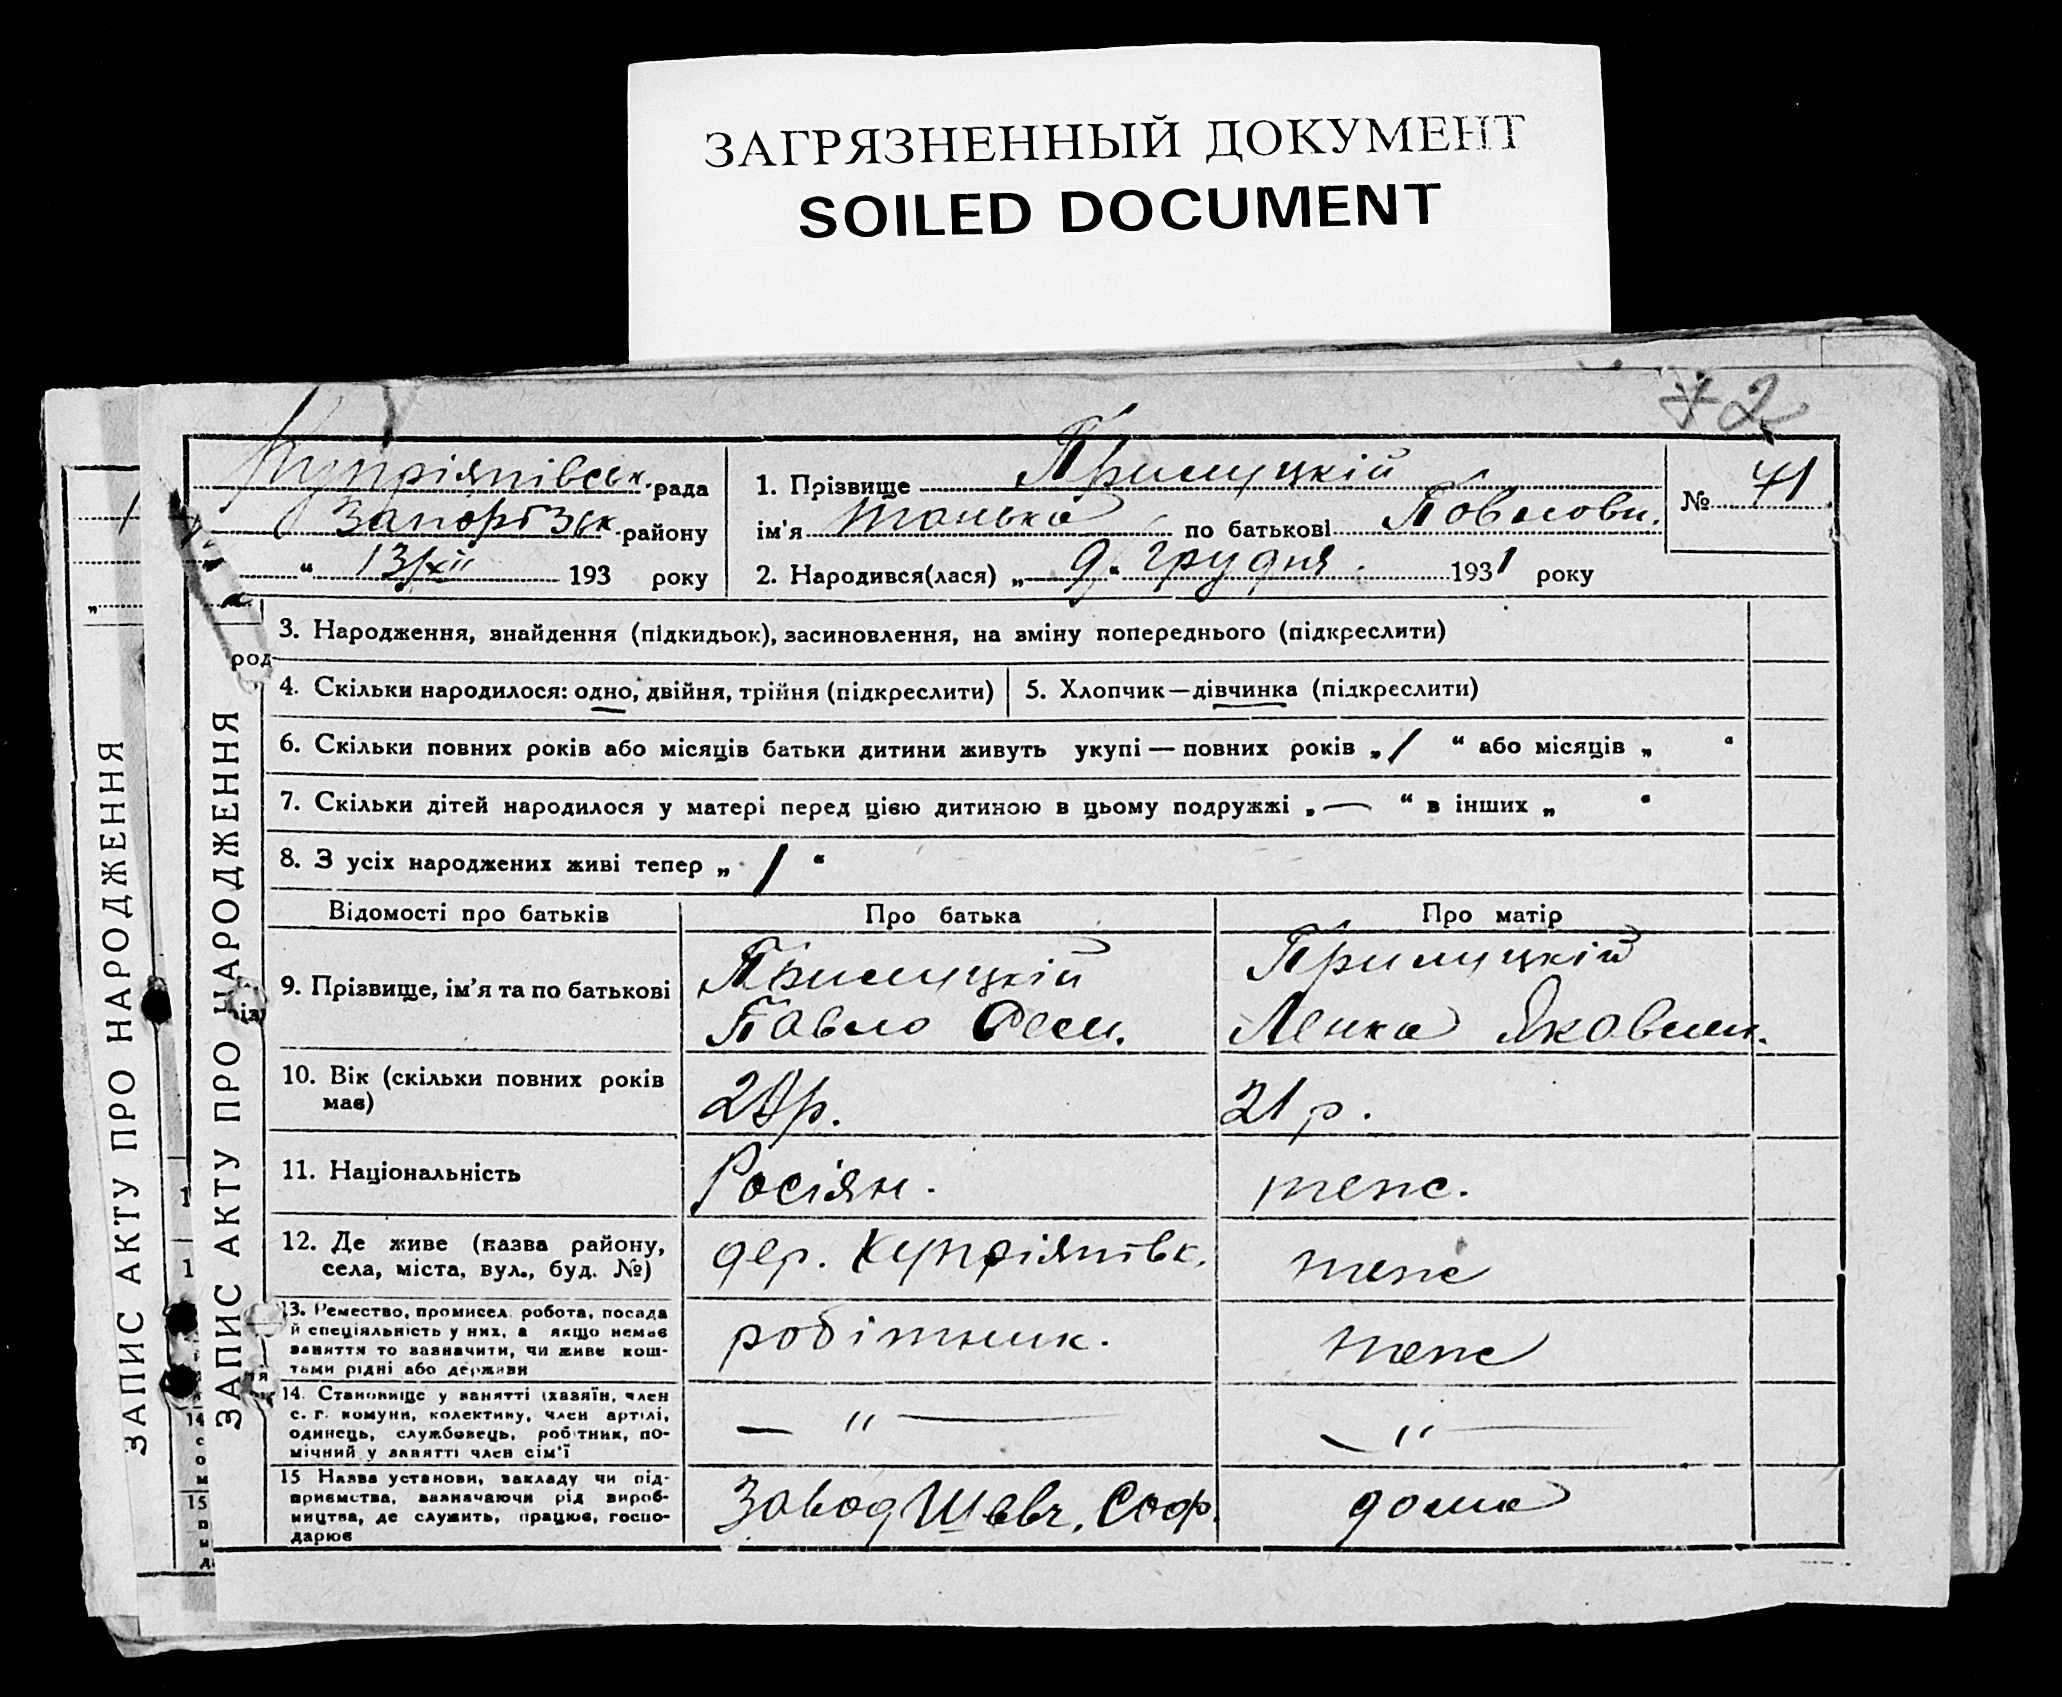 ЗАГРЯЗНЕННЫЙ ДОКУМЕНТ
SOILED DOCUMENT
72
Купріянівськ. рада
Запорізьк. району
" 13/XII 193 року
1. Прізвище Прилуцкій
ім'я Танька по батькові Павлови.
2. Народився(лася) „ 9 " грудня 1931 року
№ 71
3. Народження, знайдення (підкидьок), засиновлення, на зміну попереднього (підкреслити)
4. Скільки народилося: одно, двійня, трійня (підкреслити)
5. Хлопчик—дівчинка (підкреслити)
6. Скільки повних років або місяців батьки дитини живуть укупі — повних років „ 1 " або місяців „ "
7. Скільки дітей народилося у матері перед цією дитиною в цьому подружжі „ — " в інших „ "
8. З усіх народжених живі тепер „ 1 "
Відомості про батьків
Про батька
Про матір
9. Прізвище, ім'я та по батькові
Прилуцкій
Павло
Прилуцкій
Ленка Яковлен.
10. Вік (скільки повних років
має)
р.
21 р.
11. Національність
Росіян.
теж.
12. Де живе (назва району,
села, міста, вул., буд. №)
дер. Купріянівк.
теж
13. Ремество, промисел, робота, посада
й спеціяльність у них, а якщо немає
заняття то зазначити, чи живе кош-
тами рідні або держави
робітник.
теж
14. Становище у занятті (хазяїн, член
с. г. комуни, колективу, член артілі,
одинець, службовець, робітник, по-
мічний у занятті член сім'ї
— " —
— " —
15 Назва установи, закладу чи під-
приємства, зазначаючи рід вироб-
ництва, де служить, працює, госпо-
дарює
Завод Шевч. Соф.
дома
ЗАПИС АКТУ ПРО НАРОДЖЕННЯ
ЗАПИС АКТУ ПРО НАРОДЖЕННЯ